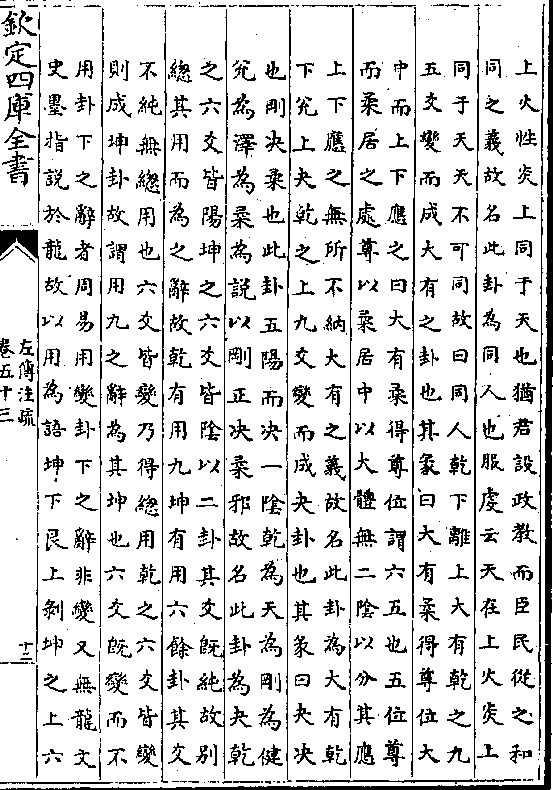 上火性炎上同于天也猶君設政教而臣民從之和
同之義故名此卦為同人也服虔云天在上火炎上
同于天天不可同故曰同人乾下離上大有乾之九
五爻變而成大有之卦也其彖曰大有柔得尊位大
中而上下應之曰大有柔得尊位謂六五也五位尊
而柔居之處尊以柔居中以大體無二陰以分其應
上下應之無所不納大有之義故名此卦為大有乾
下兊上夬乾之上九爻變而成夬卦也其彖曰夬決
也剛決柔也此卦五陽而決一陰乾為天為剛為健
兊為澤為柔為說以剛正決柔邪故名此卦為夬乾
之六爻皆陽坤之六爻皆陰以二卦其爻旣純故别
總其用而為之辭故乾有用九坤有用六餘卦其爻
不純無總用也六爻皆變乃得總用乾之六爻皆變
則成坤卦故謂用九之辭為其坤也六爻旣變而不
用卦下之辭者周易用變卦下之辭非變又無龍文
史墨指說於龍故以用為語坤下艮上剝坤之上六
欽定四庫全書
左傳注疏
卷五十三
十三